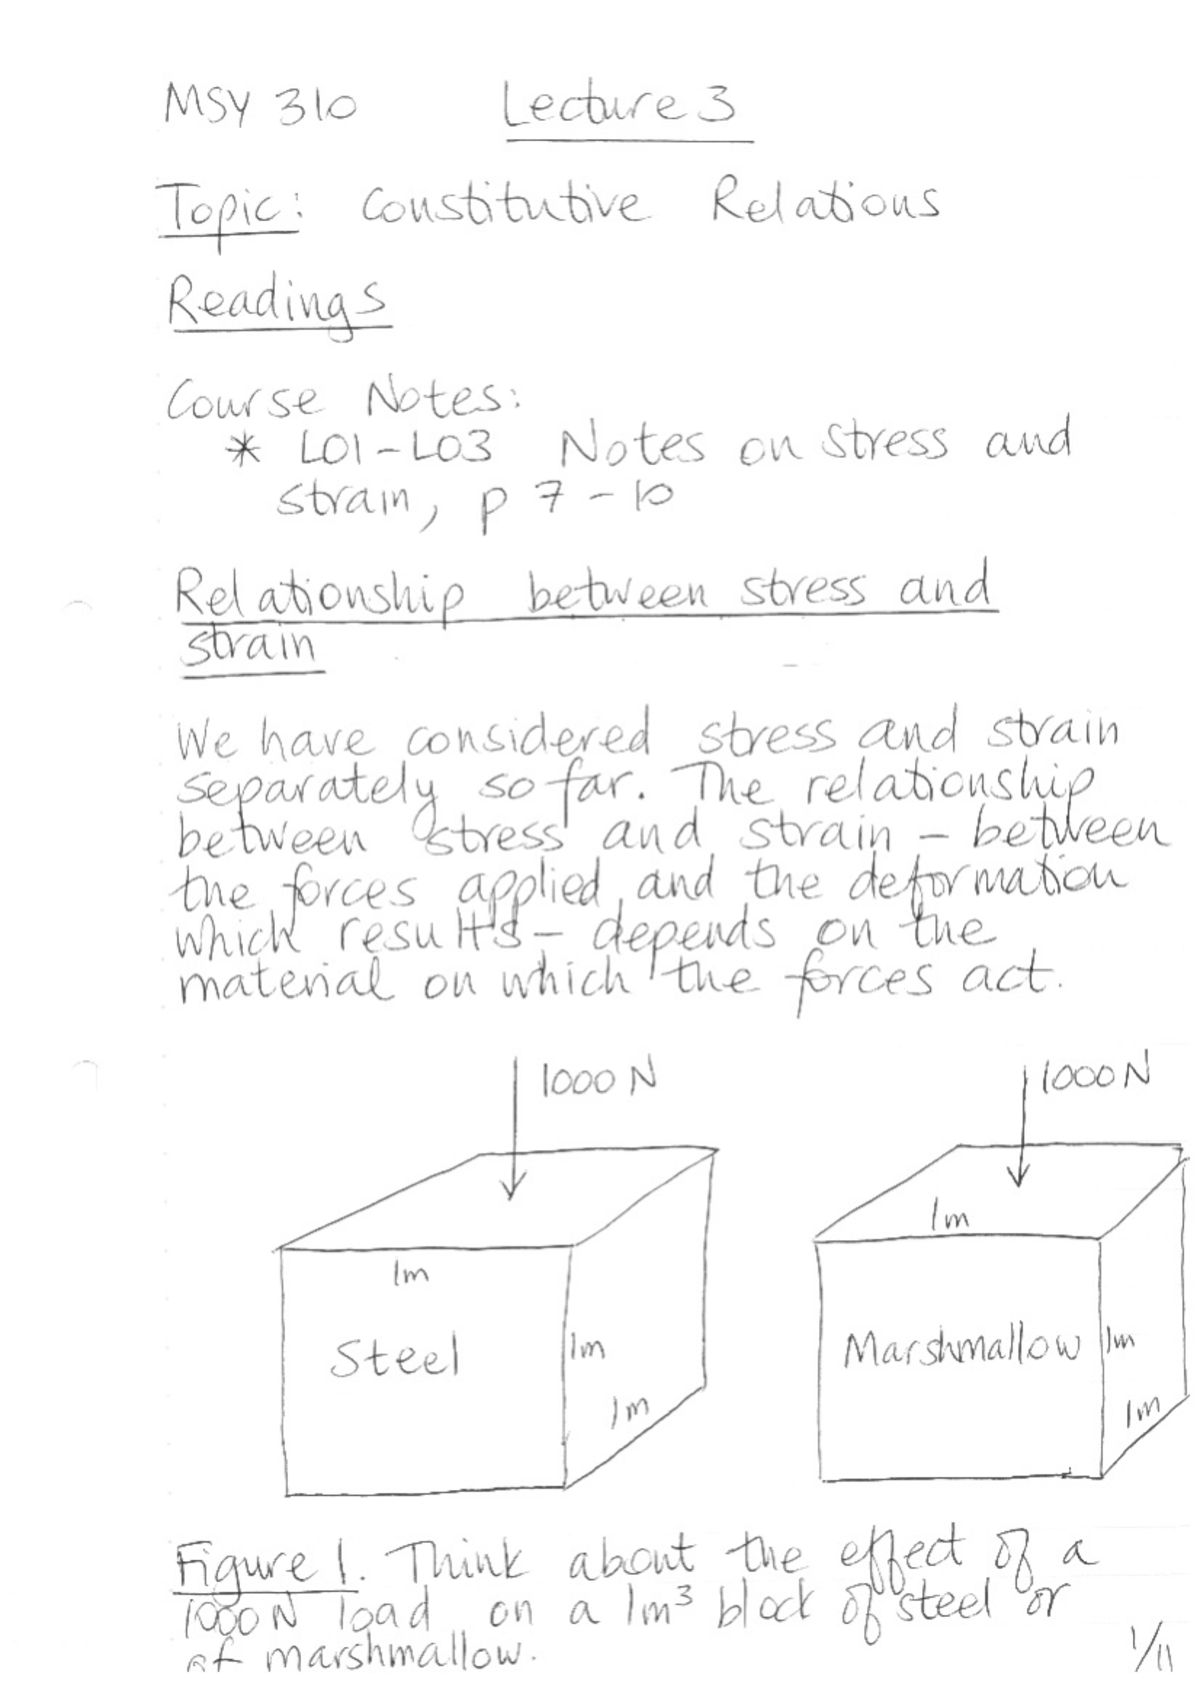 MSY 310 Lecture 3
Topic: Constitutive Relations
Readings
Course Notes:
* L01-L03 Notes on stress and
strain, p 7-10
Relationship between stress and
strain
We have considered stress and strain
separately so far. The relationship
between stress and strain - between
the forces applied and the deformation
which results - depends on the
material on which the forces act.
1000 N
1000 N
1m
1m
Steel
1m
1m
Marshmallow
1m
1m
Figure 1. Think about the effect of a
1000 N load on a 1m³ block of steel or
of marshmallow.
1/11